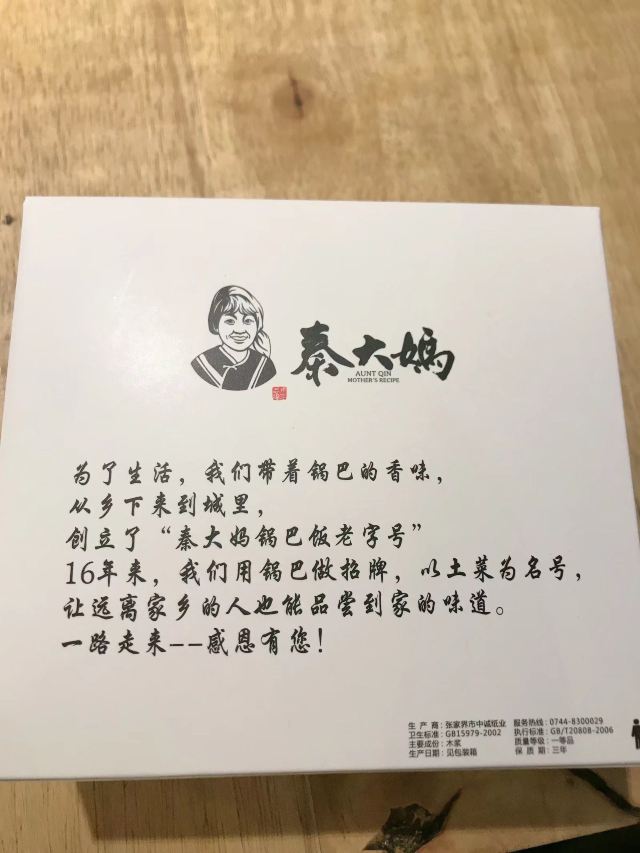 秦大媽
AUNT QIN
MOTHER'S RECIPE
为了生活，我们带着锅巴的香味，
从乡下来到城里，
创立了“秦大妈锅巴饭老字号”
16年来，我们用锅巴做招牌，以土菜为名号，
让远离家乡的人也能品尝到家的味道。
一路走来--感恩有您！
生 产 商：张家界市中诚纸业 服务热线：0744-8300029
卫生标准：GB15979-2002 执行标准：GB/T20808-2006
主要成份：木浆 质量等级：一等品
生产日期：见包装箱 保 质 期：三年